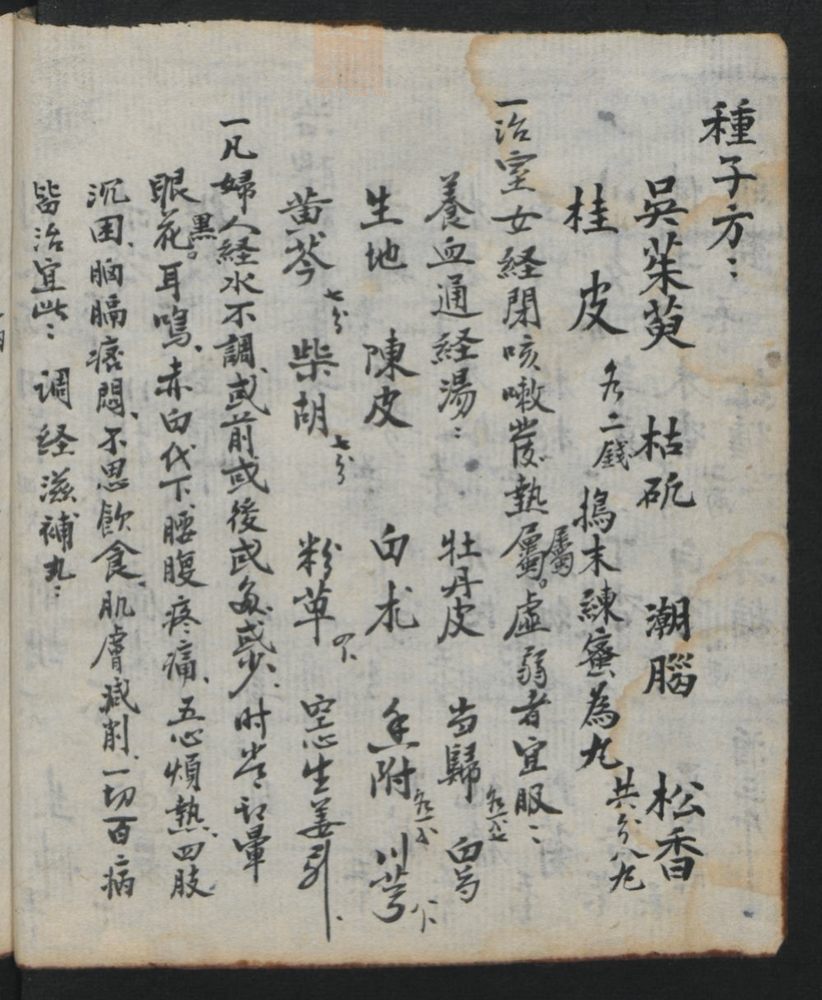 種子方：
吳茱萸　枯矾　潮腦　松香
桂皮　各二錢　搗末練蜜為丸　共分八丸
一治室女経閉咳嗽發熱屬屬。虛弱者宜服：
養血通経湯：　牡丹皮　当歸　白芍
生地　陳皮　白朮　香附　川芎
黄芩　七分　柴胡　七分　粉草　空心生姜引、
一凡婦人経水不調、或前或後或多或少、时常頭暈
眼花黑。耳鳴、赤白代下、腰腹疼痛、五心煩熱、四肢
沉困、胸膈痞悶、不思飲食、肌膚减削、一切百病
皆治宜此：調経滋補丸：